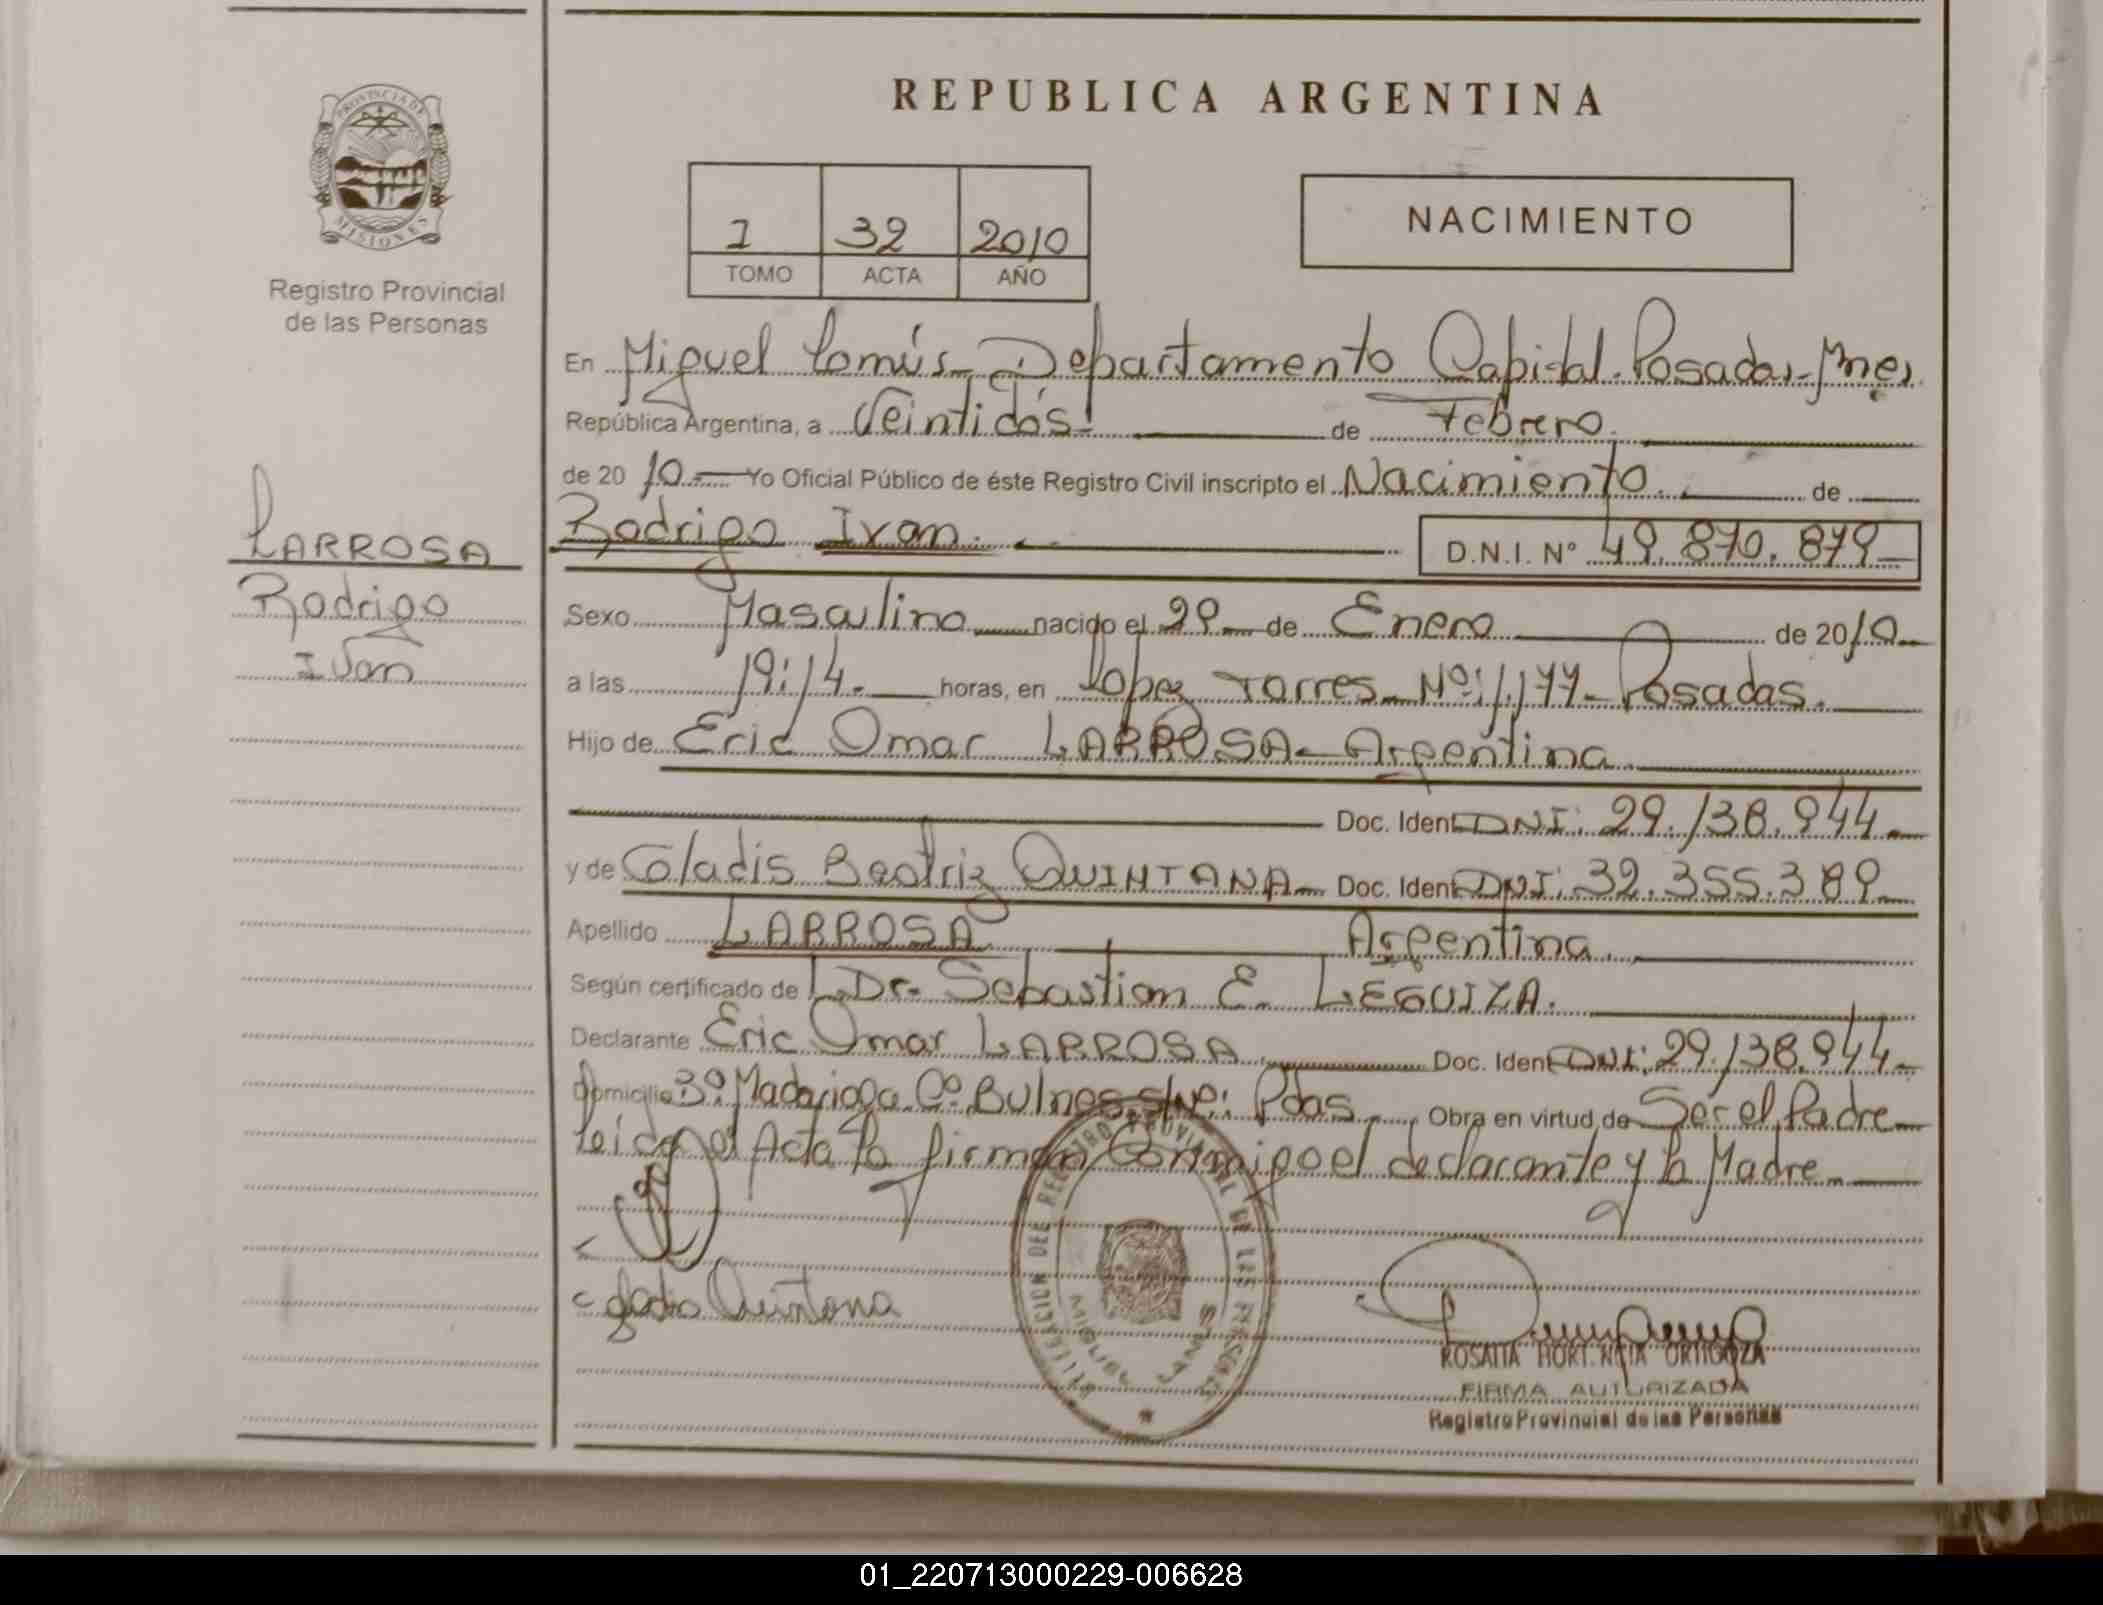 REPUBLICA ARGENTINA
PROVINCIA DE MISIONES
Registro Provincial
de las Personas
1 32 2010
TOMO ACTA AÑO
NACIMIENTO
En Miguel Lanús - Departamento Capital. Posadas - Mnes.
República Argentina, a Veintidós. de Febrero.
de 2010.- Yo Oficial Público de éste Registro Civil inscripto el Nacimiento. de
Rodrigo Ivan. D.N.I. Nº 49.870.879
LARROSA
Rodrigo
Ivan
Sexo Masculino nacido el 29 de Enero de 2010
a las 19:14. horas, en López Torres Nº: 1.177 - Posadas.
Hijo de Eric Omar LARROSA - Argentina
Doc. Ident. DNI: 29.138.944
y de Gladis Beatriz QUINTANA Doc. Ident. DNI: 32.355.389
Apellido LARROSA Argentina.
Según certificado de L. Dr. Sebastian E. LEGUIZA.
Declarante Eric Omar LARROSA Doc. Ident. DNI: 29.138.944
Domicilio Bº: Madariaga Cº. Bulnes s/Nº: Pdas. Obra en virtud de Ser el Padre
Leída el Acta la firman Conmigo el declarante y la Madre
DELEGACION DEL REGISTRO PROVINCIAL DE LAS PERSONAS
MIGUEL LANUS
Gladis Quintana
ROSALIA HORTENCIA ORTIGOZA
FIRMA AUTORIZADA
Registro Provincial de las Personas
01_220713000229-006628